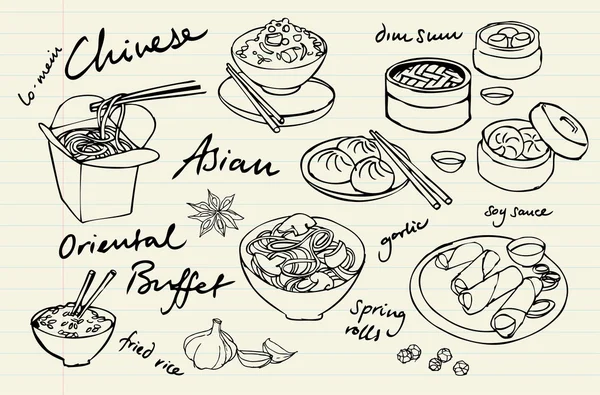 lo-mein
Chinese
dim sum
Asian
soy sauce
Oriental
Buffet
garlic
Spring
rolls
fried rice